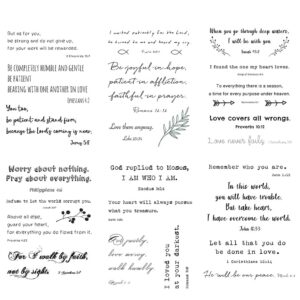 But as for you,
be strong and do not give up,
for your work will be rewarded.
2 Chronicles 15:7
Be completely humble and gentle
be patient
bearing with one another in love
Ephesians 4:2
You too,
be patient and stand firm,
because the Lord's coming is near.
James 5:8
Worry about nothing.
Pray about everything.
Philippians 4:6
Refuse to let the world corrupt you.
Above all else,
guard your heart,
for everything you do flows from it.
Proverbs 4:23
For we walk by faith,
not by sight.
2 Corinthians 5:7
I waited patiently for the Lord,
he turned to me and heard my cry
Psalm 40:1
Be joyful in hope,
patient in affliction,
faithful in prayer.
Romans 12:12
Love them anyway.
Luke 23:34
God replied to Moses,
I AM WHO I AM.
Exodus 3:14
Your heart will always pursue
what you treasure.
Act justly,
love mercy,
walk humbly.
I loved you
at your darkest.
Romans 5:8
When you go through deep waters,
I will be with you
Isaiah 43:2
I found the one my heart loves.
To everything there is a season,
a time for every purpose under heaven.
Love covers all wrongs.
Proverbs 10:12
Love never fails.
Remember who you are.
In this world,
you will have trouble.
But take heart,
I have overcome the world.
John 16:33
Let all that you do
be done in love.
1 Corinthians 16:14
He will be our peace.